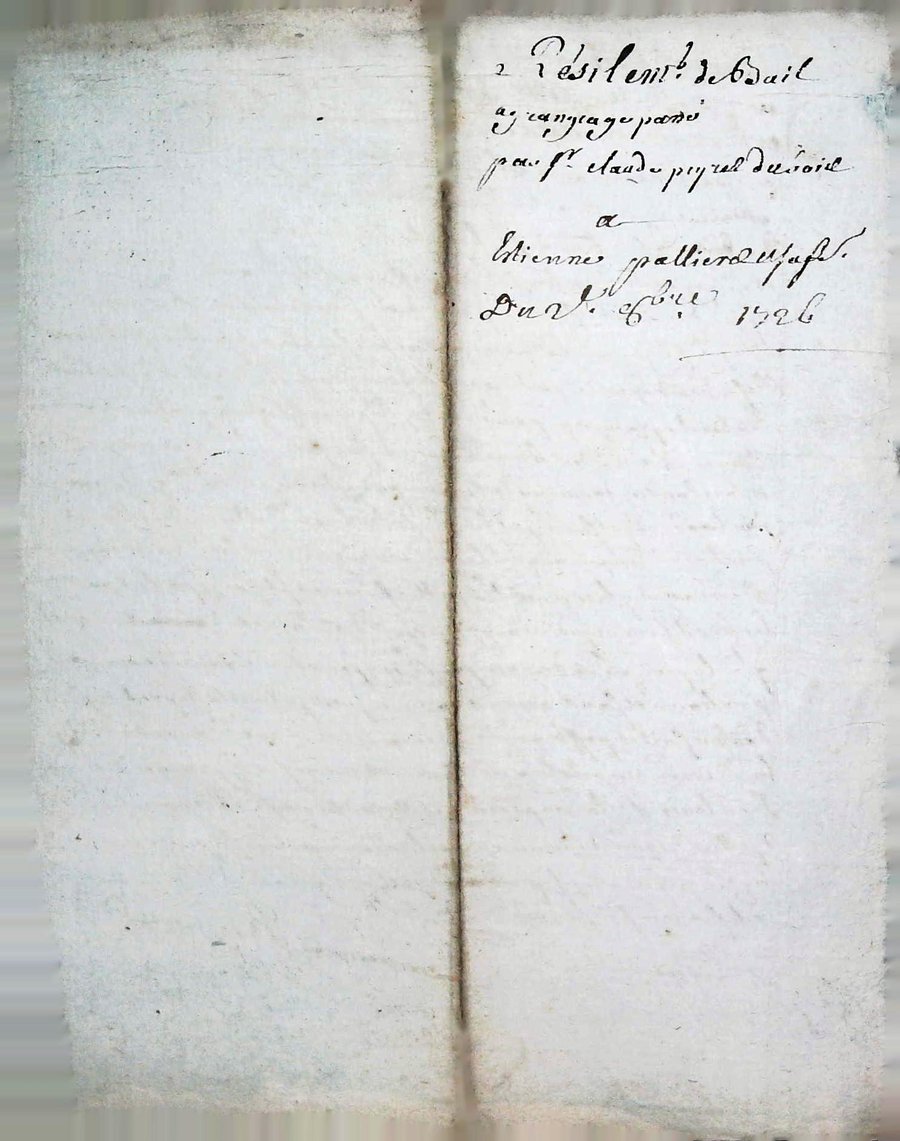 Résilem.t de Bail
a grangeage passé
par S.r claude peyrel du soieil
a
Estienne pallier et sa fe.
Du 2.e 8bre 1726